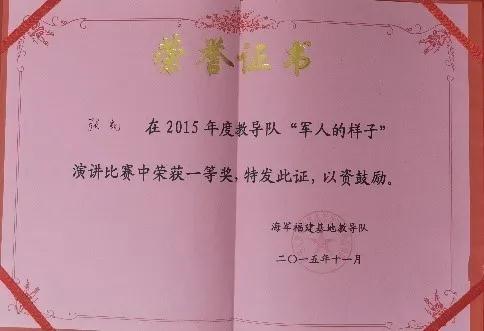 荣誉证书
张 在2015年度教导队“军人的样子”
演讲比赛中荣获一等奖,特发此证,以资鼓励。
海军福建基地教导队
二〇一五年十一月